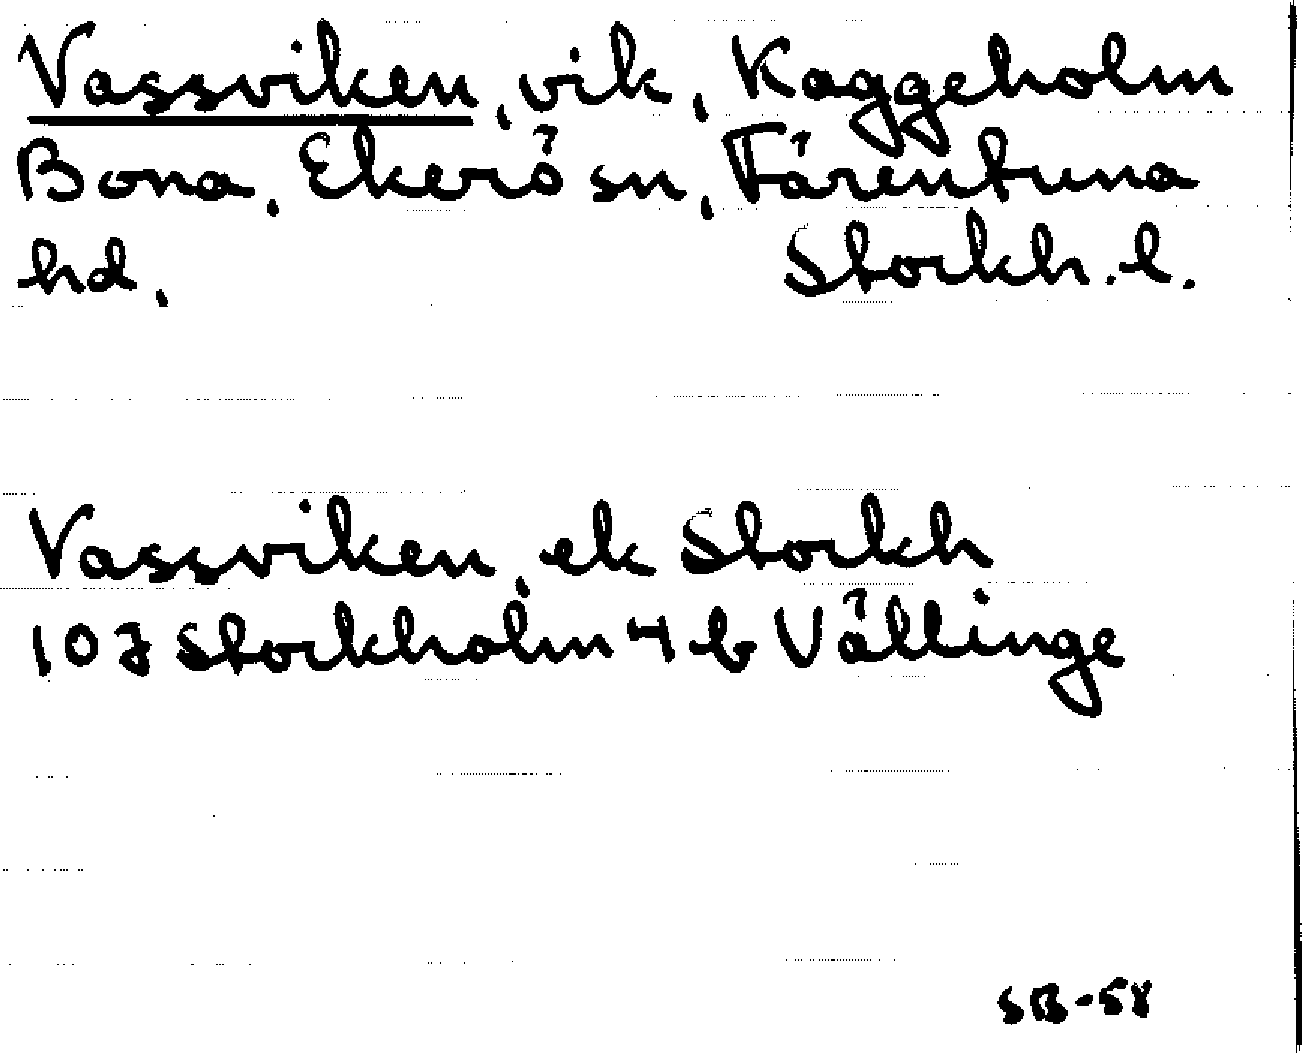 Vassviken, vik, Kaggeholm
Bona, Ekerö sn, Färentuna
hd, Stockh. l.
Vassviken, ek Stockh
10J Stockholm 4 b Vällinge
SB-58